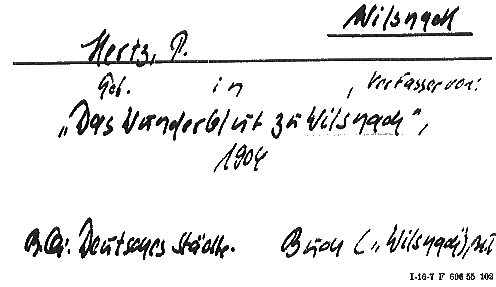 Wilsnack
Hertz, P.
Geb. in , Verfasser von:
„Das Wunderblut zu Wilsnack",
1904
Deutsches Städte- Buch („Wilsnack"),
I-16-7 F 696 55 102